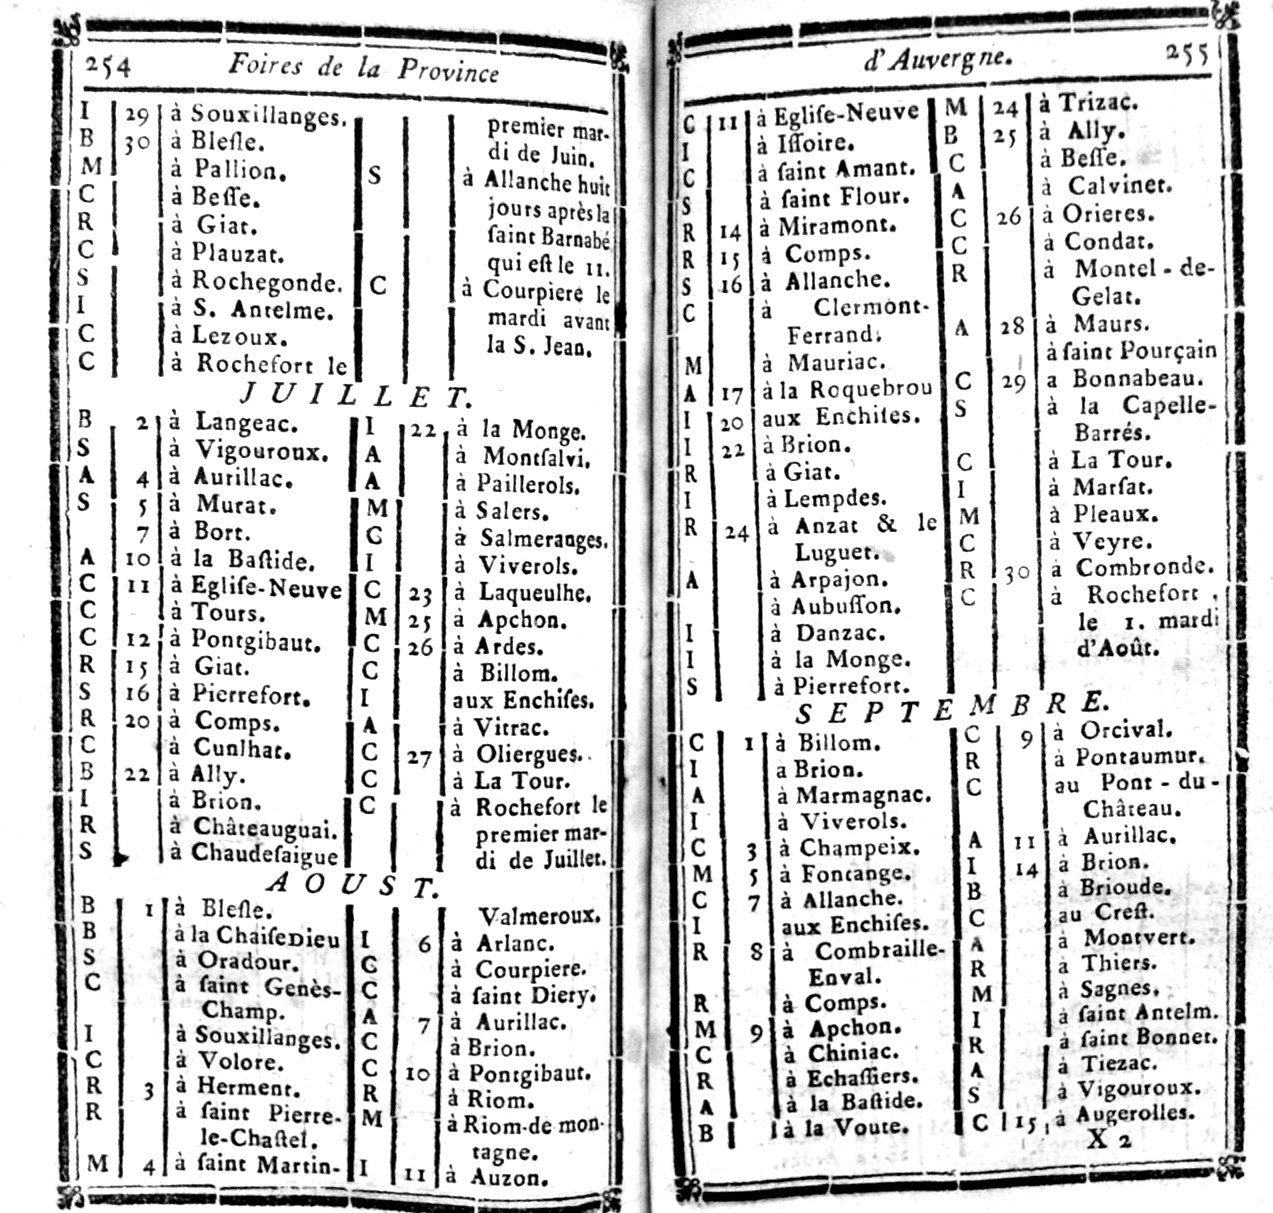 254 Foires de la Province
I 29 à Souxillanges.
B 30 à Bleſle.
M à Pallion.
C à Beſſe.
R à Giat.
C à Plauzat.
S à Rochegonde.
I à S. Antelme.
C à Lezoux.
C à Rochefort le
premier mar-
di de Juin.
S à Allanche huit
jours après la
ſaint Barnabé
qui eſt le 11.
C à Courpiere le
mardi avant
la S. Jean.
JUILLET.
B 2 à Langeac.
S à Vigouroux.
A 4 à Aurillac.
S 5 à Murat.
7 à Bort.
A 10 à la Baſtide.
C 11 à Egliſe-Neuve
C à Tours.
C 12 à Pontgibaut.
R 15 à Giat.
S 16 à Pierrefort.
R 20 à Comps.
C à Cunlhat.
B 22 à Ally.
I à Brion.
R à Châteauguai.
S à Chaudeſaigue
I 22 à la Monge.
A à Montſalvi.
A à Paillerols.
M à Salers.
C à Salmeranges.
I à Viverols.
C 23 à Laqueulhe.
M 25 à Apchon.
C 26 à Ardes.
C à Billom.
I aux Enchiſes.
A à Vitrac.
C 27 à Oliergues.
C à La Tour.
C à Rochefort le
premier mar-
di de Juillet.
AOUST.
B 1 à Bleſle.
B à la ChaiſeDieu
S à Oradour.
C à ſaint Genès-
Champ.
I à Souxillanges.
C à Volore.
R 3 à Herment.
R à ſaint Pierre-
le-Chaſtel.
M 4 à ſaint Martin-
Valmeroux.
I 6 à Arlanc.
C à Courpiere.
C à ſaint Diery.
A 7 à Aurillac.
C à Brion.
C 10 à Pontgibaut.
R à Riom.
M à Riom-de mon-
tagne.
I 11 à Auzon.
d'Auvergne. 255
C 11 à Egliſe-Neuve
I à Iſſoire.
C à ſaint Amant.
S à ſaint Flour.
R 14 à Miramont.
R 15 à Comps.
S 16 à Allanche.
C à Clermont-
Ferrand.
M à Mauriac.
A 17 à la Roquebrou
I 20 aux Enchiſes.
I 22 à Brion.
R à Giat.
I à Lempdes.
R 24 à Anzat & le
Luguet.
A à Arpajon.
à Aubuſſon.
I à Danzac.
I à la Monge.
S à Pierrefort.
M 24 à Trizac.
B 25 à Ally.
C à Beſſe.
A à Calvinet.
C 26 à Orieres.
C à Condat.
R à Montel-de-
Gelat.
A 28 à Maurs.
à ſaint Pourçain
C 29 a Bonnabeau.
S à la Capelle-
Barrés.
C à La Tour.
I à Marſat.
M à Pleaux.
C à Veyre.
R 30 à Combronde.
C à Rochefort,
le 1. mardi
d'Août.
SEPTEMBRE.
C 1 à Billom.
I a Brion.
A à Marmagnac.
I à Viverols.
C 3 à Champeix.
M 5 à Fontange.
C 7 à Allanche.
I aux Enchiſes.
R 8 à Combraille-
Enval.
R à Comps.
M 9 à Apchon.
C à Chiniac.
R à Echaſſiers.
A à la Baſtide.
B à la Voute.
C 9 à Orcival.
R à Pontaumur.
C au Pont-du-
Château.
A 11 à Aurillac.
I 14 à Brion.
B à Brioude.
C au Creſt.
A à Montvert.
R à Thiers.
M à Sagnes.
I à ſaint Antelm.
R à ſaint Bonnet.
A à Tiezac.
S à Vigouroux.
C 15 à Augerolles.
X 2